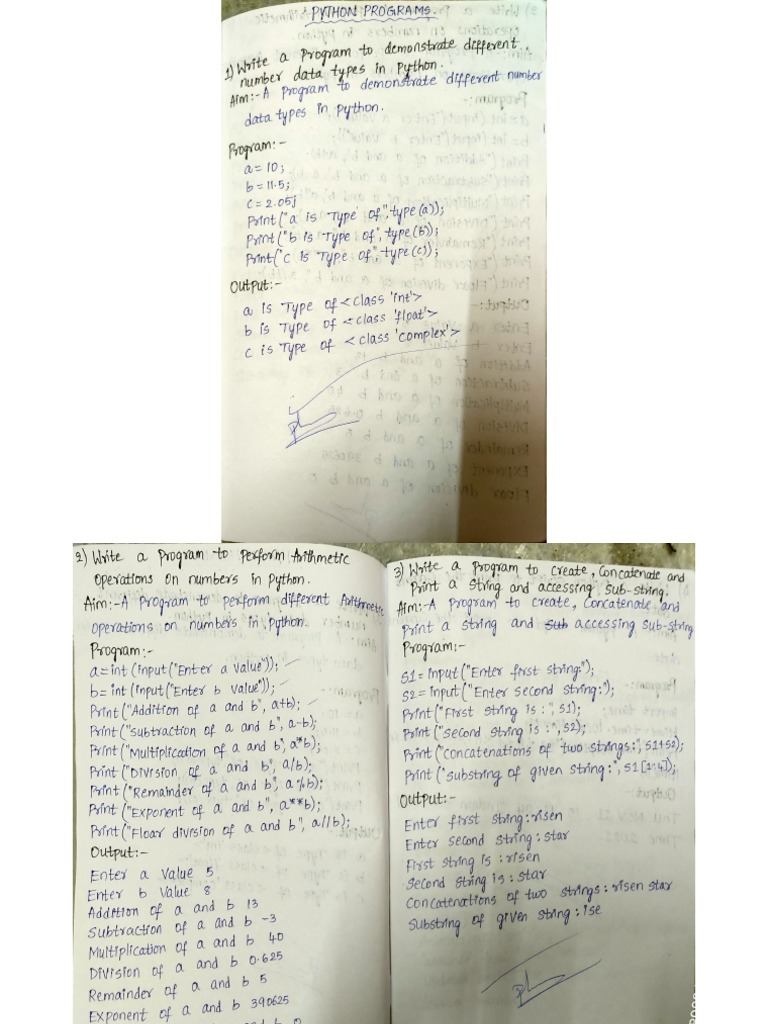 PYTHON PROGRAMS.
1) Write a Program to demonstrate different
number data types in Python.
Aim:- A Program to demonstrate different number
data types in python.
Program:-
a = 10;
b = 11.5;
c = 2.05j
Print("a is Type of", type(a));
Print("b is Type of", type(b));
Print("c is Type of", type(c));
Output:-
a is Type of <class 'int'>
b is Type of <class 'float'>
c is Type of <class 'complex'>
2) Write a Program to perform Arithmetic
Operations on numbers in Python.
Aim:- A Program to perform different Arithmetic
operations on numbers in python.
Program:-
a = int (input("Enter a value"));
b = int (input("Enter b value"));
Print("Addition of a and b", a+b);
Print("subtraction of a and b", a-b);
Print("Multiplication of a and b", a*b);
Print("Division of a and b", a/b);
Print("Remainder of a and b", a%b);
Print("Exponent of a and b", a**b);
Print("Floar division of a and b", a//b);
Output:-
Enter a value 5
Enter b value 8
Addition of a and b 13
Subtraction of a and b -3
Multiplication of a and b 40
Division of a and b 0.625
Remainder of a and b 5
Exponent of a and b 390625
3) Write a Program to create, Concatenate and
Print a string and accessing Sub-string.
Aim:- A Program to create, Concatenate and
Print a string and accessing sub-string
Program:-
S1 = input("Enter first string:");
S2 = input("Enter second string:");
Print("First string is :", S1);
Print("second string is :", S2);
Print("concatenations of two strings:", S1+S2);
Print("substring of given string:", S1[1:4]);
Output:-
Enter first string: risen
Enter second string: star
First string is : risen
Second string is : star
Concatenations of two strings: risen star
Substring of given string: ise